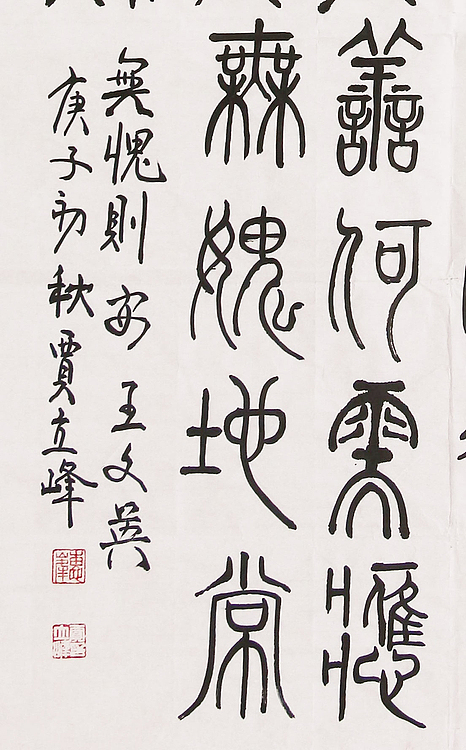 譱何需應
無媿地常
無愧則安王文
庚子初秋賈立峰